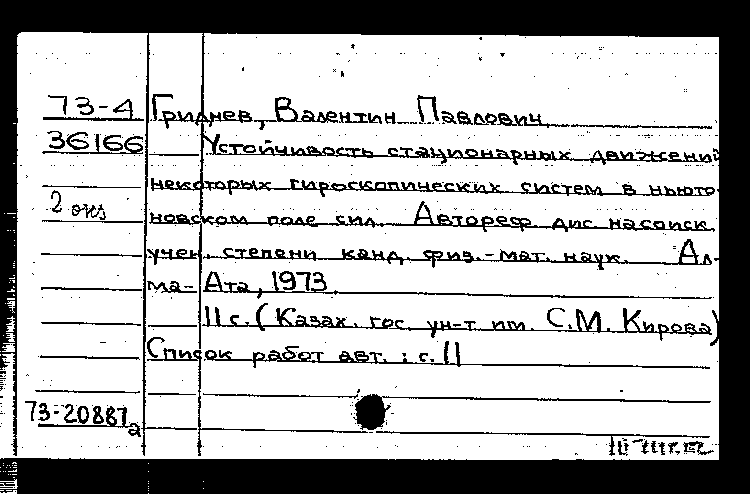 73-4 Гриднев, Валентин Павлович
36166 Устойчивость стационарных движений
некоторых гироскопических систем в ньюто-
2 экз новском поле сил. Автореф. дис. на соиск.
учен. степени канд. физ.-мат. наук. Ал-
ма-Ата, 1973.
11 с. (Казах. гос. ун-т им. С.М. Кирова)
Список работ авт.: с. 11
73-20887а